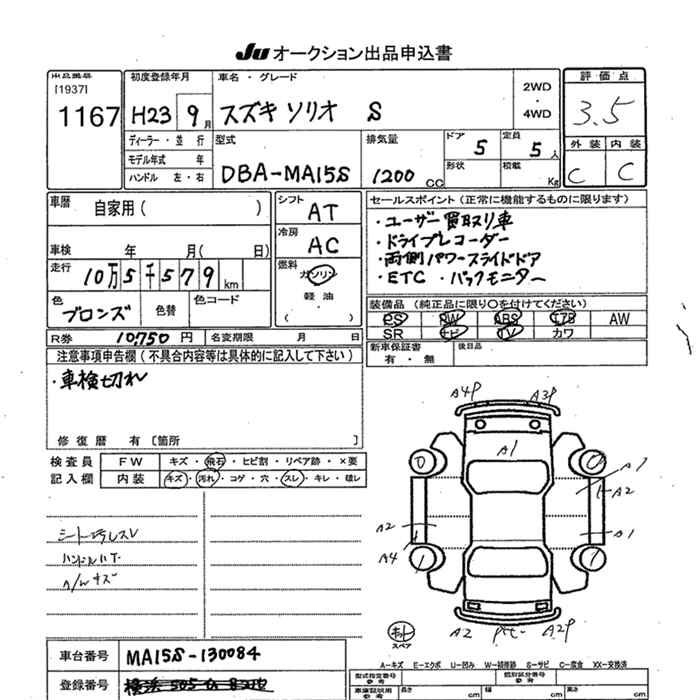 JU オークション出品申込書
[1937]
1167
初度登録年月
H23 9月
ディーラー・並行
モデル年式 年
ハンドル 左・右
車名・グレード
スズキ ソリオ S
2WD
・
4WD
評価点
3.5
外装 内装
C C
型式
DBA-MA15S
排気量
1200 CC
ドア 5
定員 5人
形状
積載 Kg
車歴 自家用( )
車検 年 月( 日)
走行 10万5千579km
色 ブロンズ
色替
色コード
シフト AT
冷房 AC
燃料
ガソリン
軽油
( )
セールスポイント(正常に機能するものに限ります)
・ユーザー買取り車
・ドライブレコーダー
・両側パワースライドドア
・ETC ・バックモニター
装備品(純正品に限り〇を付けてください)
PS PW ABS エアB AW
SR ナビ TV カワ
R券 10,750円 名変期限 月 日
新車保証書
有・無
後日品
注意事項申告欄(不具合内容等は具体的に記入して下さい)
・車検切れ
修復歴 有[箇所 ]
検査員
記入欄
FW キズ・飛石・ヒビ割・リペア跡・×要
内装 キズ・汚れ・コゲ・穴・スレ・キレ・破レ
シート汚レスレ
A4P A3P
A1
A1
A2
A2 A1
A4
A2 A2P
スペア
A-キズ E-エクボ U-凹み W-補修跡 S-サビ C-腐食 XX-交換済
車台番号 MA15S-130084
登録番号
型式指定番号
参考
類別区分番号
参考
車庫証明用
参考
長さ cm
幅 cm
高さ cm